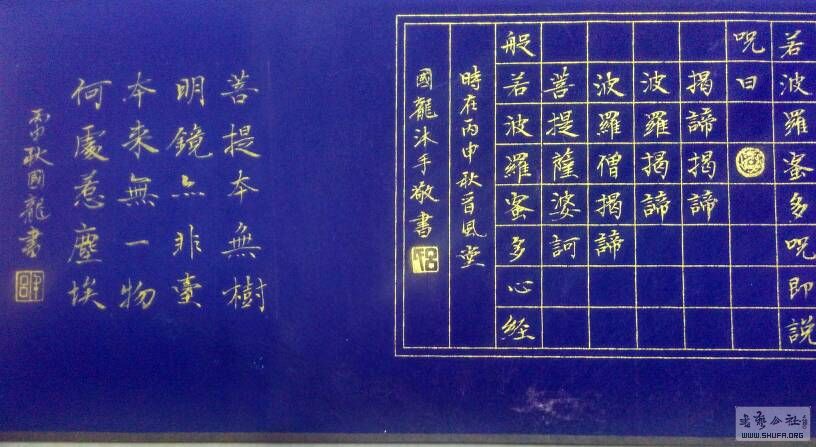 若波羅蜜多呪即説
呪曰
揭諦揭諦
波羅揭諦
波羅僧揭諦
菩提薩婆訶
般若波羅蜜多心経
時在丙申秋首風堂
國龍沐手敬書
菩提本無樹
明鏡亦非臺
本来無一物
何處惹塵埃
丙申秋國龍書
WWW.SHUFA.ORG